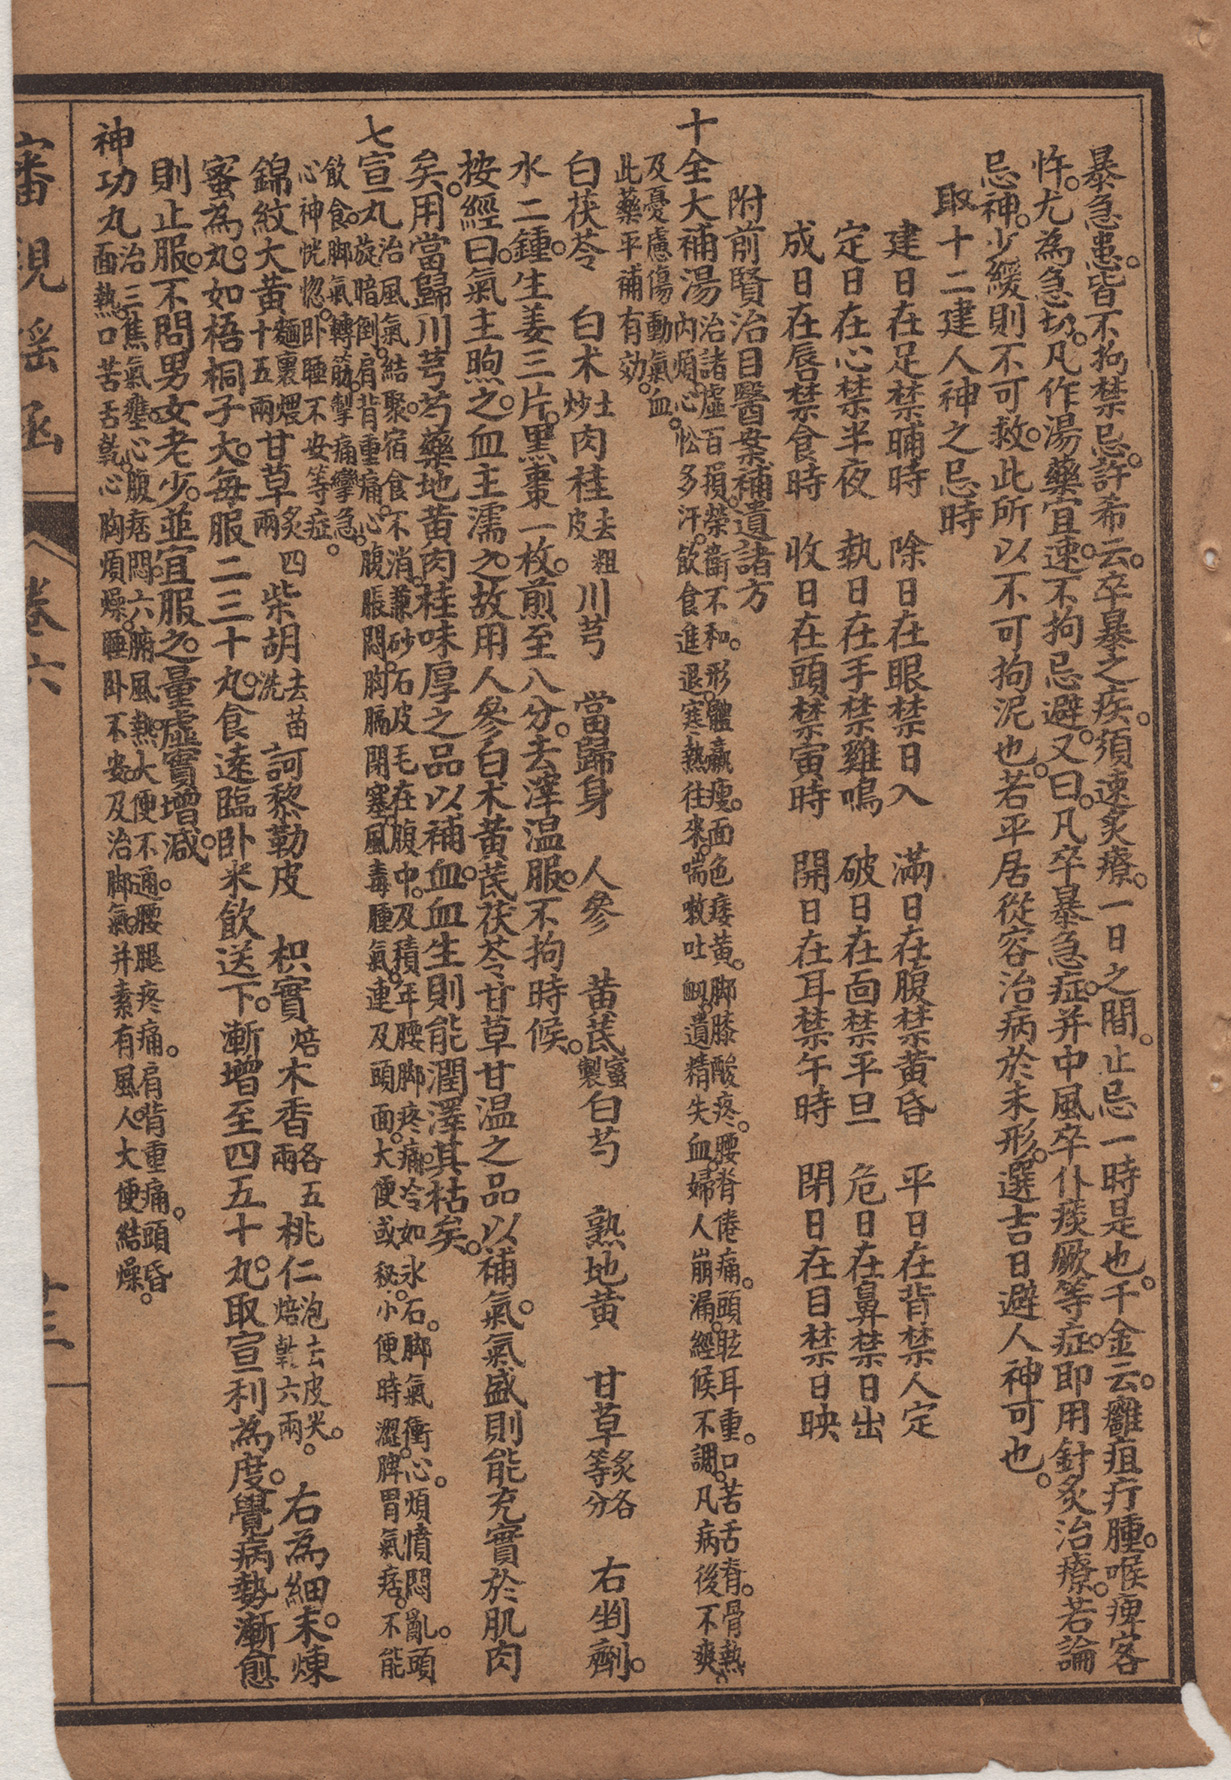 暴急患。皆不拘禁忌。許希云。卒暴之疾。須速灸療。一日之間。止忌一時是也。千金云。癰疽疔腫。喉痺客
忤。尤為急切。凡作湯藥宜速。不拘忌避。又曰。凡卒暴急症。并中風卒仆痰厥等症。即用針灸治療。若論
忌神。少緩則不可救。此所以不可拘泥也。若平居從容治病於未形。選吉日避人神可也。
取十二建人神之忌時
建日在足禁晡時　除日在眼禁日入　滿日在腹禁黃昏　平日在背禁人定
定日在心禁半夜　執日在手禁雞鳴　破日在面禁平旦　危日在鼻禁日出
成日在唇禁食時　收日在頭禁寅時　開日在耳禁午時　閉日在目禁日映
附前賢治目醫案補遺諸方
十全大補湯治諸虛百損。榮衛不和。形體羸瘦。面色痿黃。脚膝酸疼。腰脊倦痛。頭眩耳重。口苦舌脊。骨熱
內煩。心忪多汗。飲食進退。寒熱往來。喘嗽吐衂。遺精失血。婦人崩漏。經候不調。凡病後不爽。
及憂慮傷動氣血。
此藥平補有效。
白茯苓　白朮土炒　肉桂去粗皮　川芎　當歸身　人參　黃茋蜜製　白芍　熟地黃　甘草炙各等分　右剉劑。
水二鍾。生姜三片。黑棗一枚。煎至八分。去滓温服。不拘時候。
按經曰。氣主煦之。血主濡之。故用人參白朮黃茋茯苓甘草甘温之品以補氣。氣盛則能充實於肌肉
矣。用當歸川芎芍藥地黃肉桂味厚之品以補血。血生則能潤澤其枯矣。
七宣丸治風氣結聚。宿食不消。兼砂石皮毛在腹中。及積年腰脚疼痛。冷如氷石。脚氣衝心。煩憒悶亂。頭
旋暗倒。肩背重痛。心腹脹悶。胸膈閉塞。風毒腫氣。連及頭面。大便或秘。小便時澀。脾胃氣痞。不能
飲食。脚氣轉筋。掣痛攣急。
心神恍惚。卧睡不安等症。
錦紋大黃麵裹煨十五兩　甘草炙四兩　柴胡去苗洗　訶黎勒皮　枳實焙　木香各五兩　桃仁泡去皮尖。焙乾六兩　右為細末。煉
蜜為丸。如梧桐子大。每服二三十丸。食遠臨卧米飲送下。漸增至四五十丸。取宣利為度。覺病勢漸愈
則止服。不問男女老少。並宜服之。量虛實增減。
神功丸治三焦氣壅。心腹痞悶。六腑風熱。大便不通。腰腿疼痛。肩背重痛。頭昏
面熱。口苦舌乾。心胸煩燥。睡卧不安。及治脚氣。并素有風人。大便結燥。
審視瑤函
卷六
十三